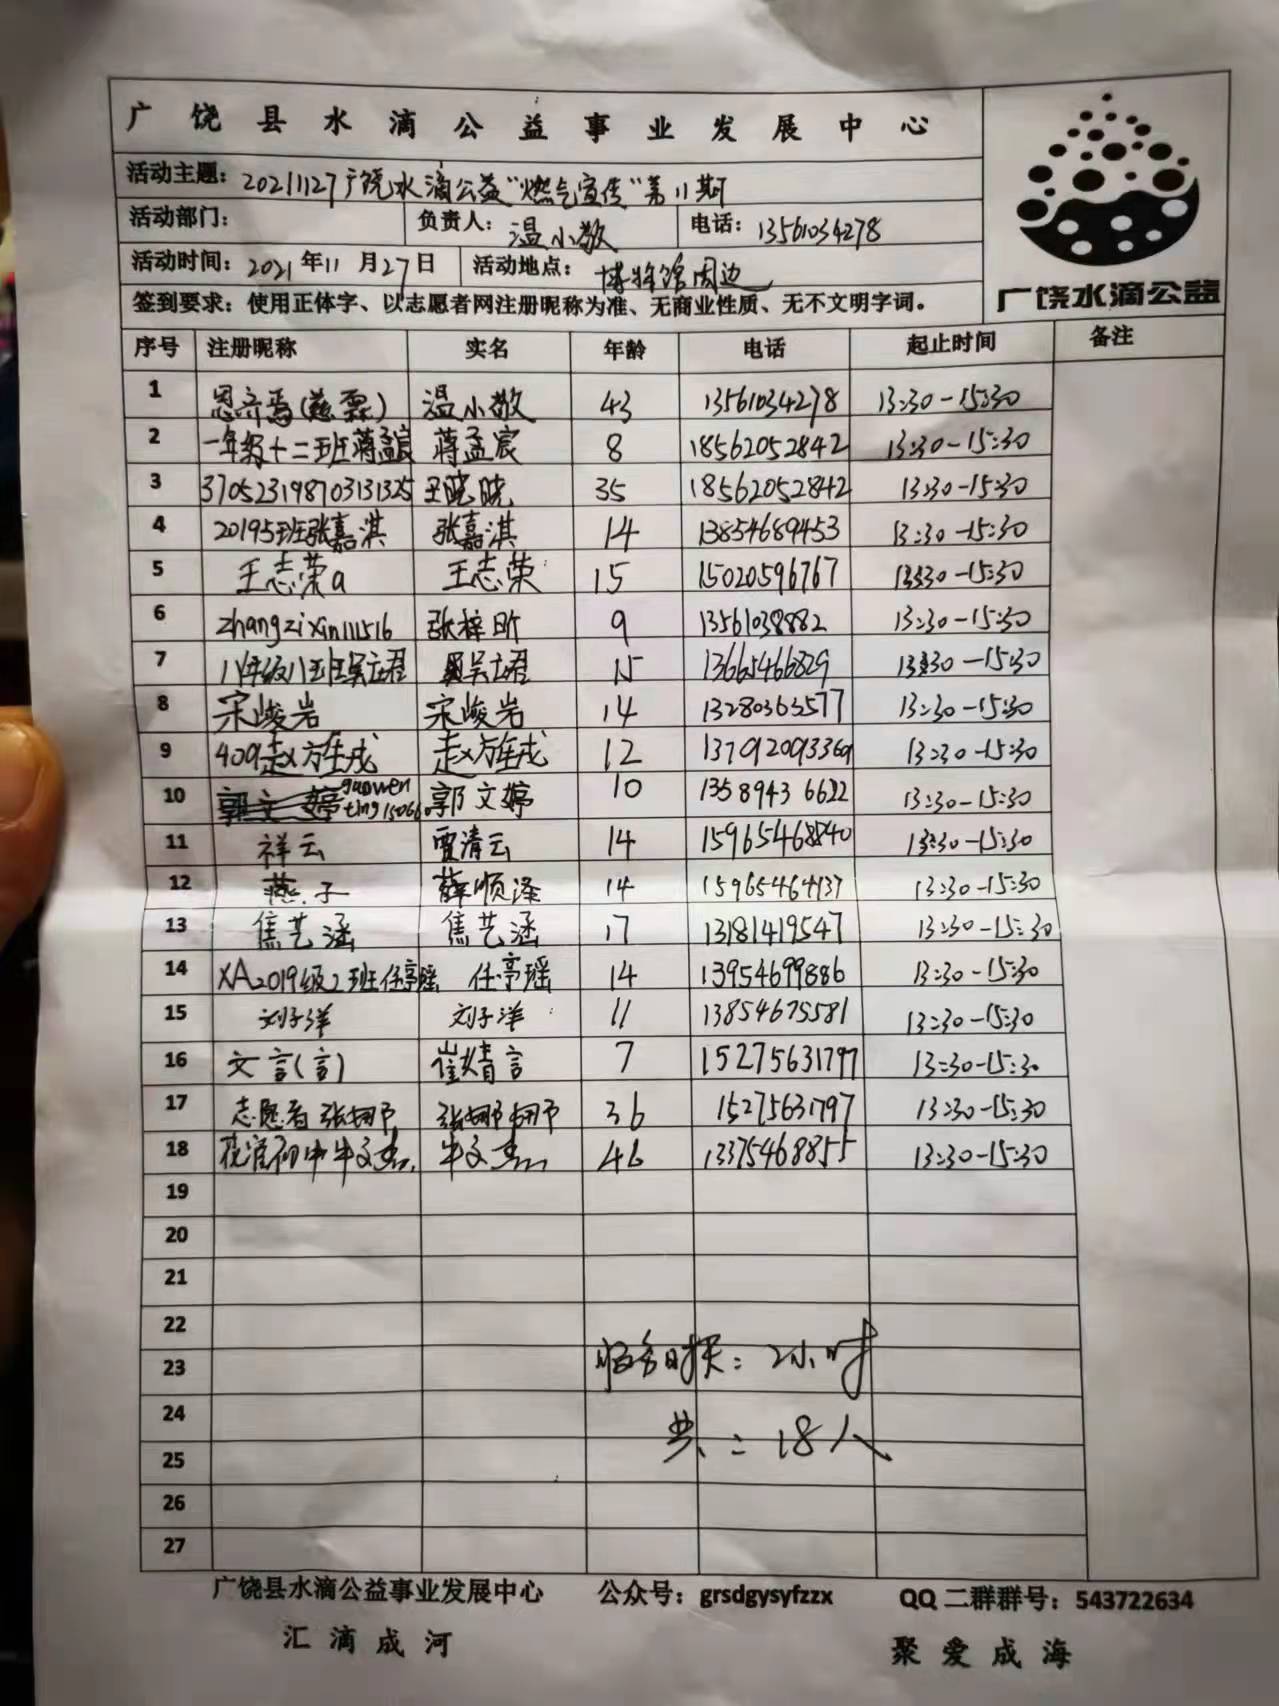 广饶县水滴公益事业发展中心
广饶水滴公益
活动主题：20211127广饶水滴公益“燃气宣传”第11期
活动部门： 负责人：温小敬 电话：13561034278
活动时间：2021年11月27日 活动地点：博物馆周边
签到要求：使用正体字、以志愿者网注册昵称为准、无商业性质、无不文明字词。
序号 注册昵称 实名 年龄 电话 起止时间 备注
1 温小敬 43 13561034278 13:30-15:30
2 一年级十二班蒋孟宸 蒋孟宸 8 18562052842 13:30-15:30
3 370523198703131325 王晓晓 35 18562052842 13:30-15:30
4 20195班张嘉淇 张嘉淇 14 13854689453 13:30-15:30
5 王志荣a 王志荣 15 15020596767 13:30-15:30
6 zhangzixin111516 张梓昕 9 13561038882 13:30-15:30
7 八年级八班吴立君 吴立君 15 13665466829 13:30-15:30
8 宋峻岩 宋峻岩 14 13280363577 13:30-15:30
9 409 12 13:30-15:30
10 郭文婷 10 13589436622 13:30-15:30
11 祥云 贾清云 14 15965468840 13:30-15:30
12 燕子 薛顺泽 14 15965464137 13:30-15:30
13 焦艺涵 焦艺涵 17 13181419547 13:30-15:30
14 XA2019级2班任亭瑶 任亭瑶 14 13954699886 13:30-15:30
15 刘子洋 刘子洋 11 13854675581 13:30-15:30
16 文言(言) 崔婧言 7 15275631797 13:30-15:30
17 志愿者张娜 张娜娜 36 15275631797 13:30-15:30
18 46 13375468855 13:30-15:30
19
20
21
22
23 服务时长：2小时
24 共：18人
25
26
27
广饶县水滴公益事业发展中心 公众号：grsdgysyfzzx QQ二群群号：543722634
汇滴成河 聚爱成海